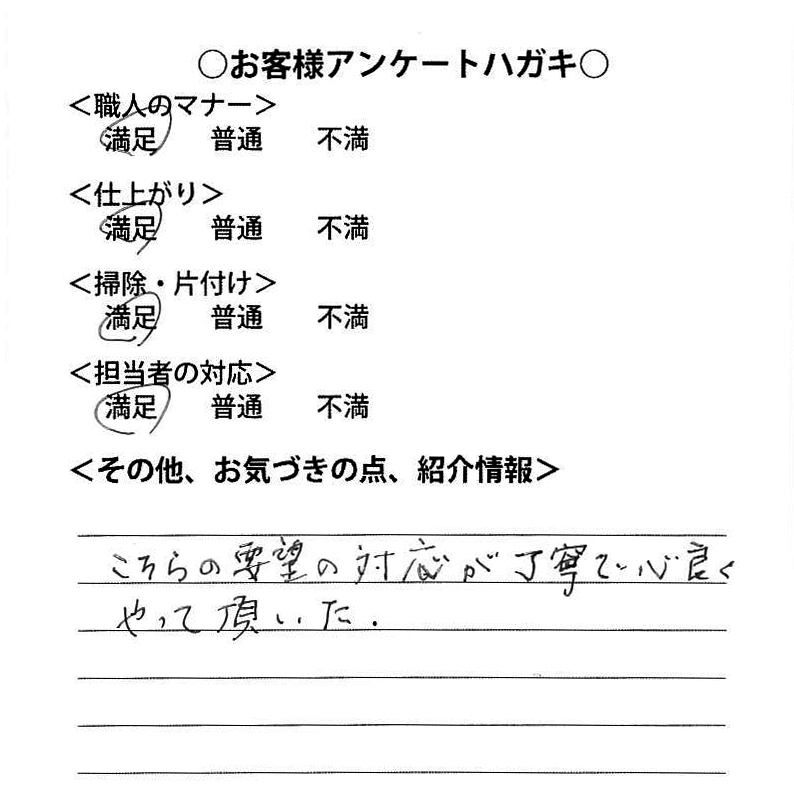 ○お客様アンケートハガキ○
＜職人のマナー＞
満足 普通 不満
＜仕上がり＞
満足 普通 不満
＜掃除・片付け＞
満足 普通 不満
＜担当者の対応＞
満足 普通 不満
＜その他、お気づきの点、紹介情報＞
こちらの要望の対応が丁寧で心良く
やって頂いた.